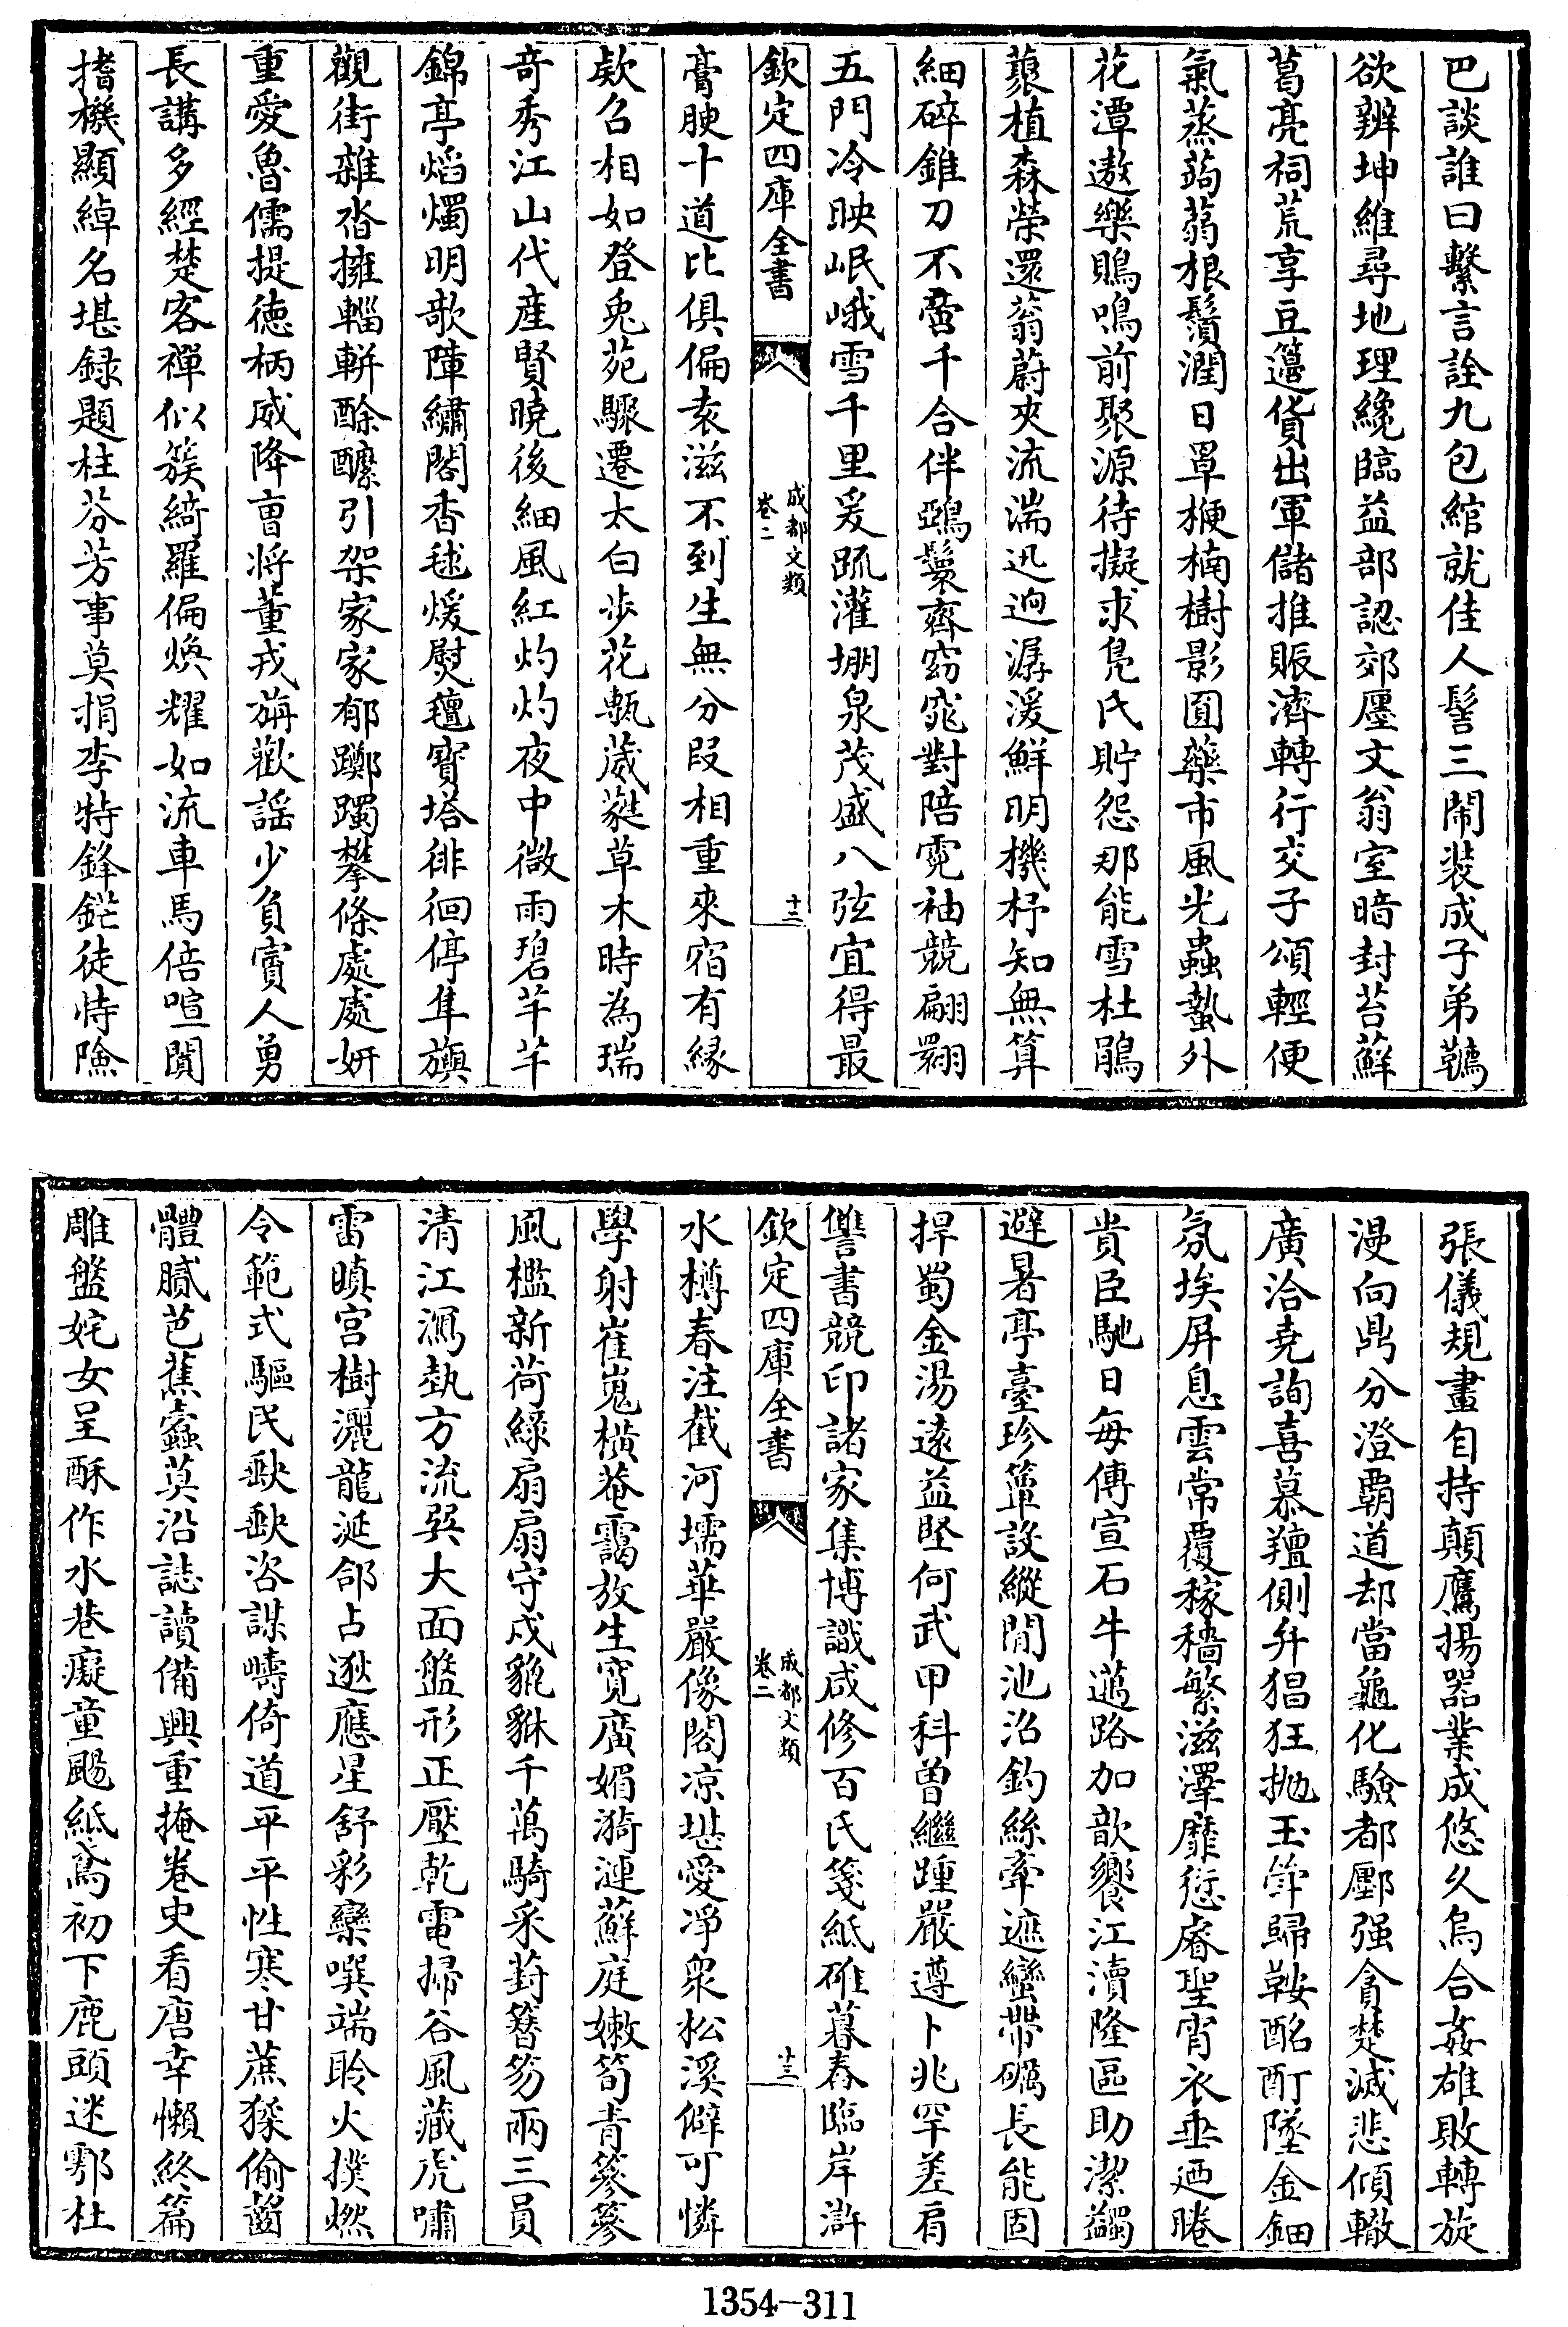 巴談誰曰繫言詮九包綰就佳人髻三鬧装成子弟韉
欲辨坤維尋地理纔臨益部認郊廛文翁室暗封苔蘚
葛亮祠荒享豆籩貨出軍儲推賑濟轉行交子頌輕便
氣蒸蒟蒻根鬚潤日罩楩楠樹影圓藥市風光蟲蟄外
花潭遨樂鵙鳴前聚源待擬求鳧氏貯怨那能雪杜鵑
蘘植森榮還蓊蔚夾流湍迅逈潺湲鮮明機杼知無算
細碎錐刀不啻千合伴鵶鬟齊窈窕對陪霓袖競翩翾
五門冷映岷峨雪千里爰疏灌堋泉茂盛八弦宜得最
欽定四庫全書
成都文類
卷二
十二
膏腴十道比俱偏袁滋不到生無分叚相重來宿有緣
欵召相如登兎苑驟遷太白步花甎葳蕤草木時為瑞
竒秀江山代産賢曉後細風紅灼灼夜中微雨碧芊芊
錦亭熖燭明歌陣繡閣香毬煖熨氊寳塔徘徊停隼旟
觀街雜沓擁輜軿酴醾引架家家郁躑躅攀條處處妍
重愛魯儒提徳柄威降曺將董戎旃歡謡少負賨人勇
長講多經楚客禪似簇綺羅偏煥耀如流車馬倍喧闐
㨗機顯綽名堪録題柱芬芳事莫捐李特鋒鋩徒恃險
張儀規畫自持顛鷹揚器業成悠久烏合姦雄敗轉旋
漫向鼎分澄覇道却當龜化驗都鄽强貪楚滅悲傾轍
廣洽堯詢喜慕羶側弁猖狂抛玉斚歸鞍酩酊墜金鈿
氛埃屏息雲常覆稼穡繁滋澤靡愆睿聖宵衣垂迺睠
貴臣馳日每傳宣石牛邁路加歆饗江瀆隆區助潔蠲
避暑亭臺珍簟設縱閒池沼釣絲牽遮蠻帶礪長能固
捍蜀金湯遠益堅何武甲科曽繼踵嚴遵卜兆罕差肩
讐書競印諸家集博識咸修百氏箋紙碓暮舂臨岸滸
欽定四庫全書
成都文類
卷二
十三
水樽春注截河壖華嚴像閣凉堪愛凈衆松溪僻可憐
學射崔嵬横菴靄放生寛廣媚漪漣蘚庭嫩筍青篸篸
風檻新荷緑扇扇守戍貔貅千萬騎采葑簪笏兩三員
清江瀉熱方流巽大面盤形正壓乾電掃谷風藏虎嘯
雷嗔宫樹灑龍涎郃占逖應星舒彩欒噀端聆火撲燃
令範式驅民蚩蚩咨謀疇倚道平平性寒甘蔗猱偷齧
體膩芭蕉蠧莫沿誌讀備興重掩卷史看唐幸懶終篇
雕盤姹女呈酥作水巷癡童颺紙鳶初下鹿頭迷鄠杜
1354-311